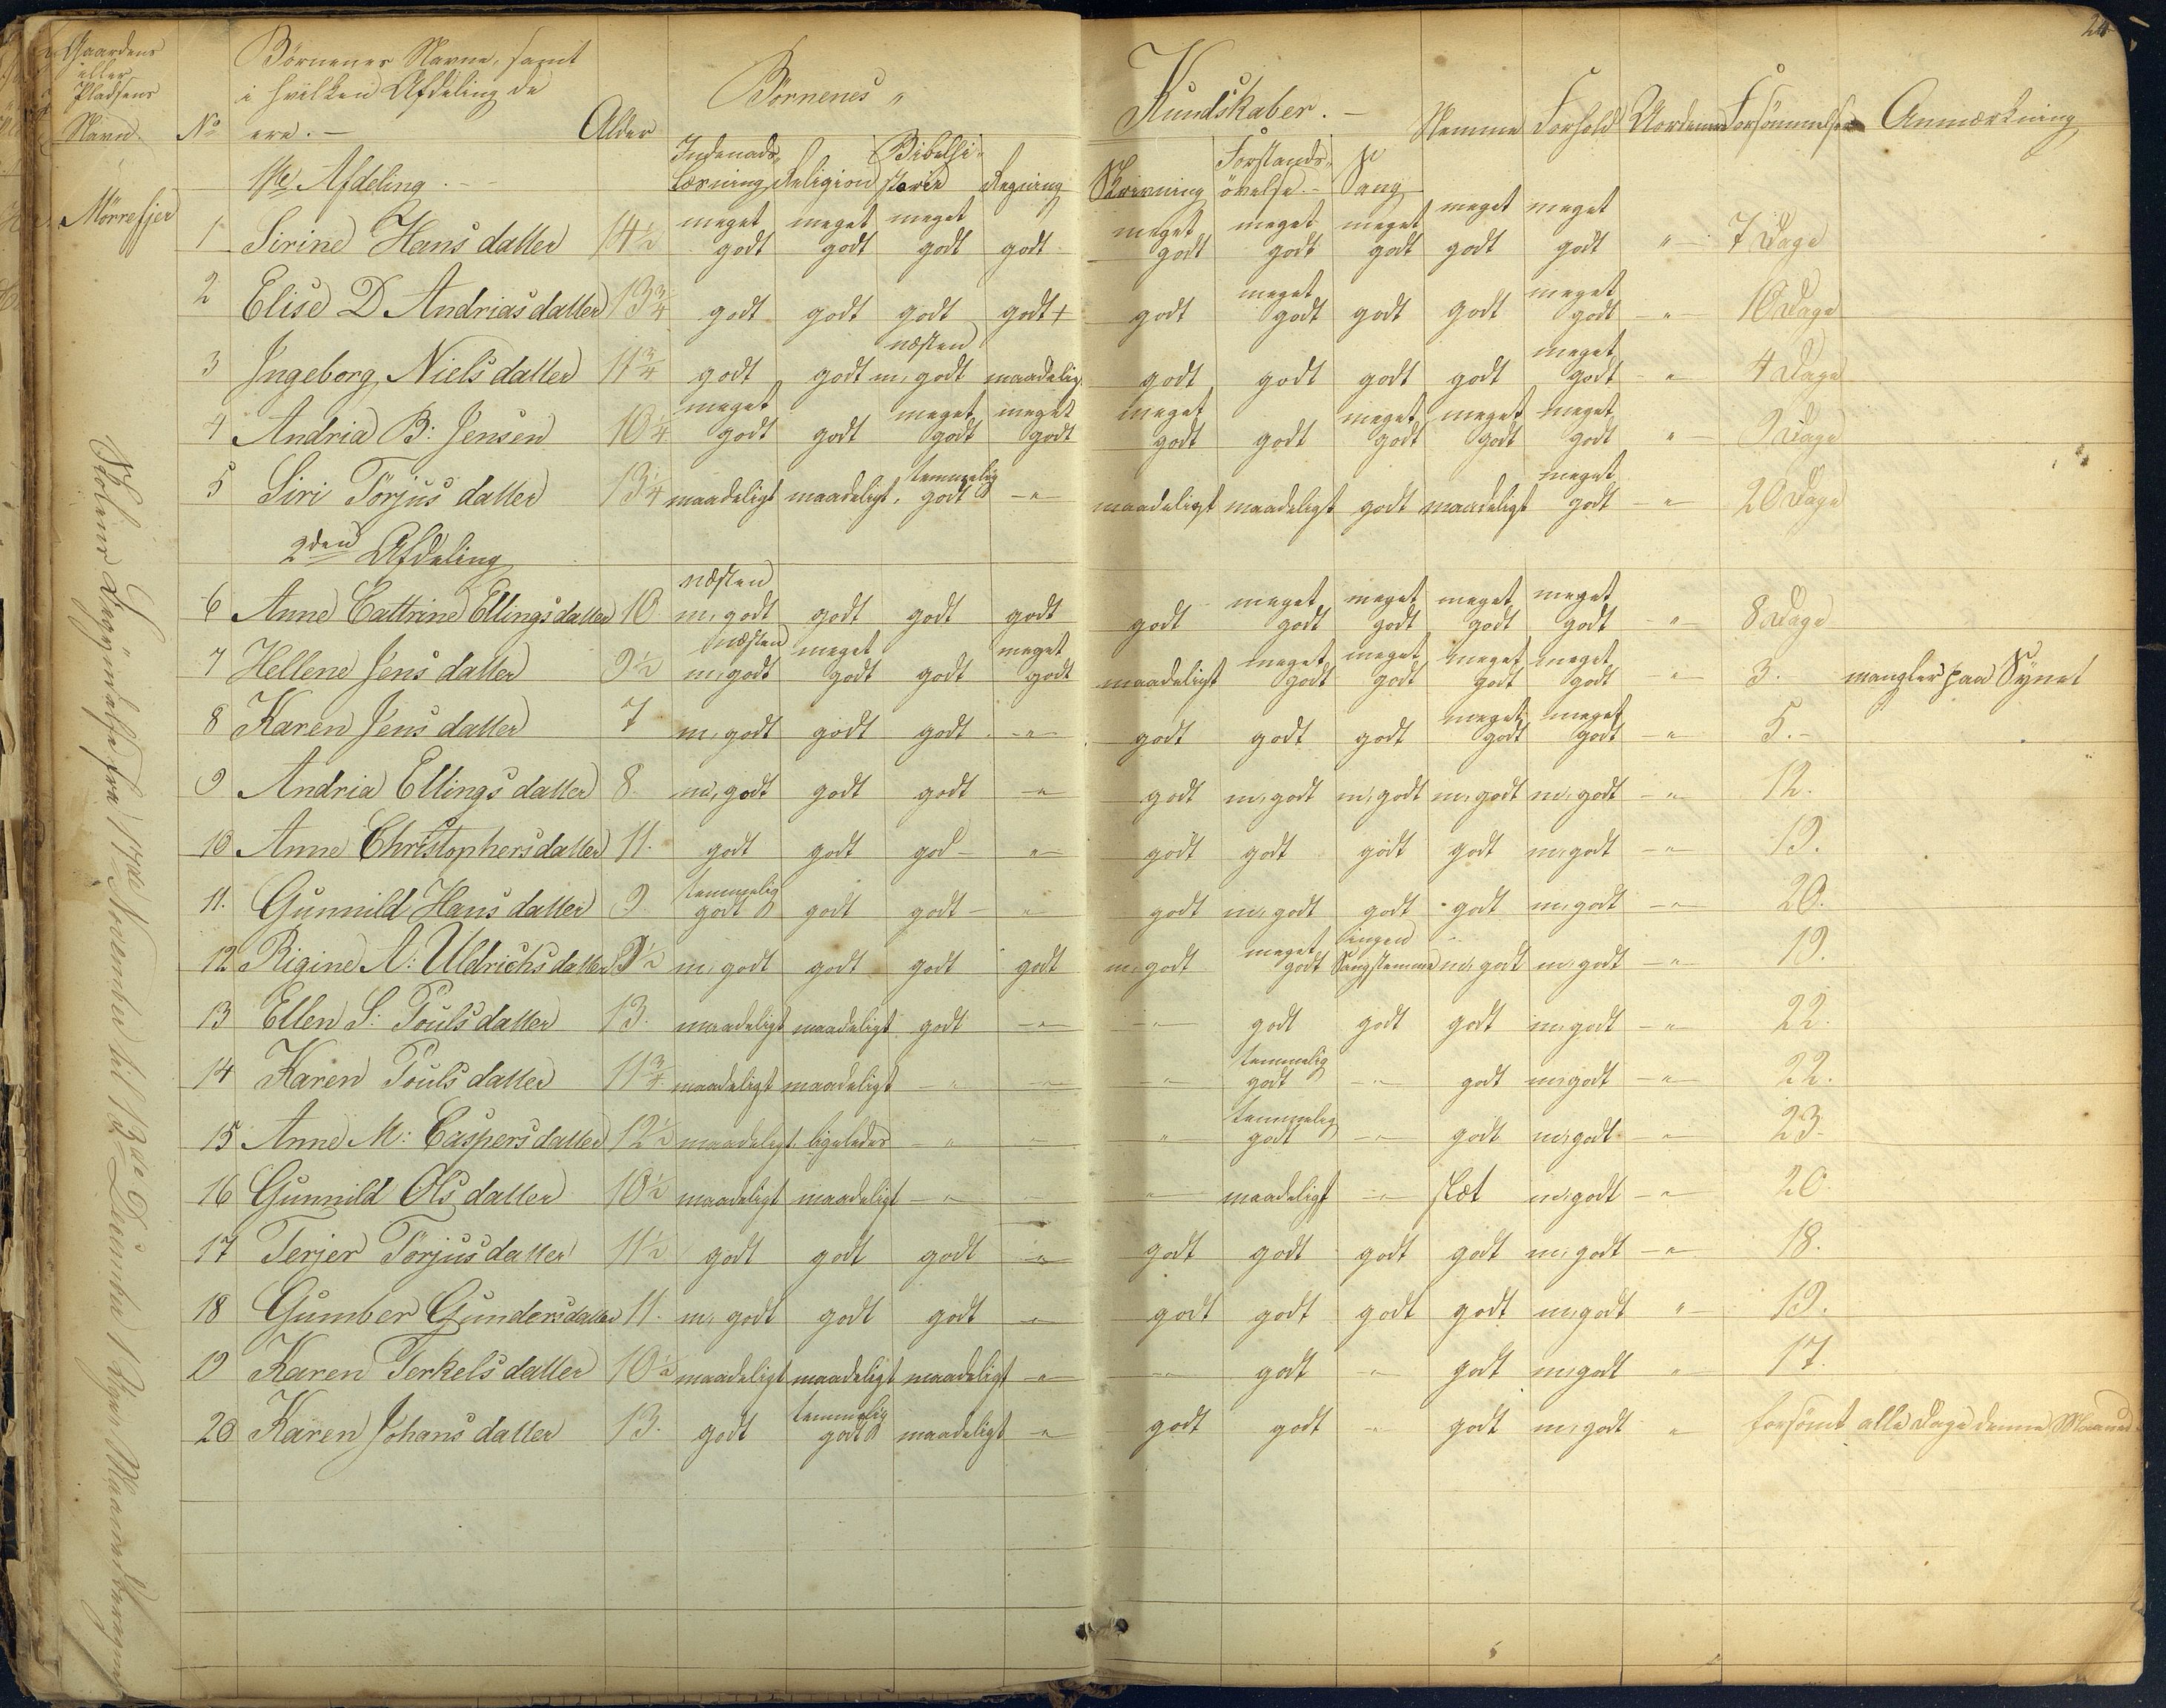 24
Gaardens
eller
Pladsens
Navn.
No
Börnenes Navne, samt
i hvilken Afdeling de
ere. —
Alder
Börnenes „
Kundskaber. —
Nemme Forhold Uordener Forsömmelser Anmærkning
Indenads-
læsning Religion Bibelhi-
storie Regning
Skrivning Forstands-
övelse. — Sang
Mörrefjer
1ste Afdeling. —
1 Sirine Hansdatter 14½ meget godt meget godt meget godt godt meget godt meget godt meget godt meget godt meget godt „ 7 Dage
2 Elise D Andriasdatter 13¾ godt godt godt godt+ godt meget godt godt godt meget godt „ 10 Dage
3 Ingeborg Nielsdatter 11¾ godt godt næsten m, godt maadelig godt godt godt godt meget godt „ 4 Dage
4 Andria B: Jensen 10¼ meget godt godt meget godt meget godt meget godt godt meget godt meget godt meget godt „ 9 Dage
5 Siri Törjusdatter 13¼ maadeligt maadeligt, temmelig godt „ maadeligt maadeligt godt maadeligt meget godt „ 20 Dage
2den Afdeling
6 Anne Cattrine Ellingsdatter 10. næsten m, godt godt godt godt godt meget godt meget godt meget godt meget godt „ 8 Dage
7 Hellene Jensdatter 9½ næsten m, godt meget godt godt meget godt maadeligt meget godt meget godt meget godt meget godt „ 3. mangler paa Synet
8 Karen Jensdatter 7 m, godt godt godt „ godt godt godt meget godt meget godt „ 5.-
9 Andria Ellingsdatter 8. m, godt godt godt „ godt m, godt m, godt m, godt m, godt „ 12.
10 Anne Christophersdatter 11. godt godt god „ godt godt godt godt m, godt „ 19.
11. Gunnild Hansdatter 9 temmelig godt godt godt „ godt m, godt godt godt m, godt „ 20.
12 Rigine A: Uldrichsdatter 9½ m, godt godt godt godt m, godt meget godt ingen Sangstemme m, godt m, godt „ 19.
13 Ellen S: Poulsdatter 13. maadeligt maadeligt godt „ „ godt godt godt m, godt „ 22.
14 Karen Poulsdatter 11¾ maadeligt maadeligt „ „ „ temmelig godt „ godt m, godt „ 22.
15 Anne M: Caspersdatter 12½ maadeligt ligeledes „ „ „ temmelig godt „ godt m, godt „ 23.
16 Gunnild Olsdatter 10½ maadeligt maadeligt „ „ „ maadeligt „ slet m, godt „ 20.
17 Terjer Törjusdatter 11½ godt godt godt „ godt godt godt godt m, godt „ 18.
18 Gumber Gundersdatter 11. m, godt godt godt „ godt godt godt godt m, godt „ 19.
19 Karen Terkelsdatter 10½ maadeligt maadeligt maadeligt „ „ godt „ godt m, godt „ 17.
20 Karen Johansdatter 13. godt temmelig godt maadeligt „ godt godt „ godt m, godt „ forsömt alle Dage denne Maaned.
Skolens Begyndelse fra 17de November til 13de December